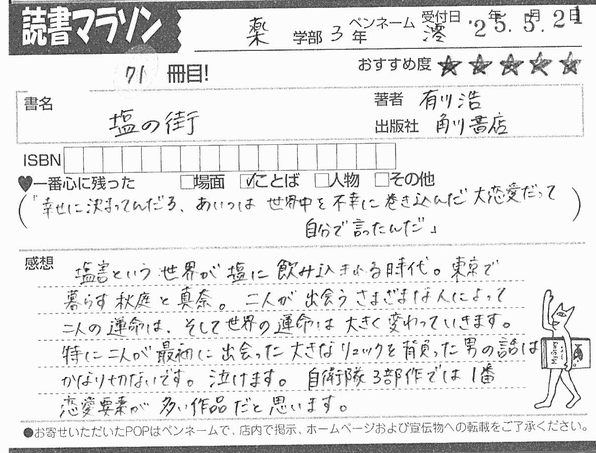 読書マラソン
薬 学部 3 年 ペンネーム 澪 受付日 '25.5.21
71 冊目!
おすすめ度 ★★★★★
書名 塩の街
著者 有川浩
出版社 角川書店
ISBN
♥一番心に残った □場面 ☑ことば □人物 □その他
(「幸せに決まってんだろ、あいつは 世界中を不幸に巻き込んだ 大恋愛だって
自分で言ったんだ」)
感想
塩害という世界が塩に飲み込まれる時代。東京で
暮らす秋庭と真奈。二人が出会うさまざまな人によって
二人の運命は、そして世界の運命は大きく変わっていきます。
特に二人が最初に出会った大きなリュックを背負った男の話は
かなり切ないです。泣けます。自衛隊3部作では1番
恋愛要素が多い作品だと思います。
●お寄せいただいたPOPはペンネームで、店内で掲示、ホームページおよび宣伝物への転載をご了承ください。